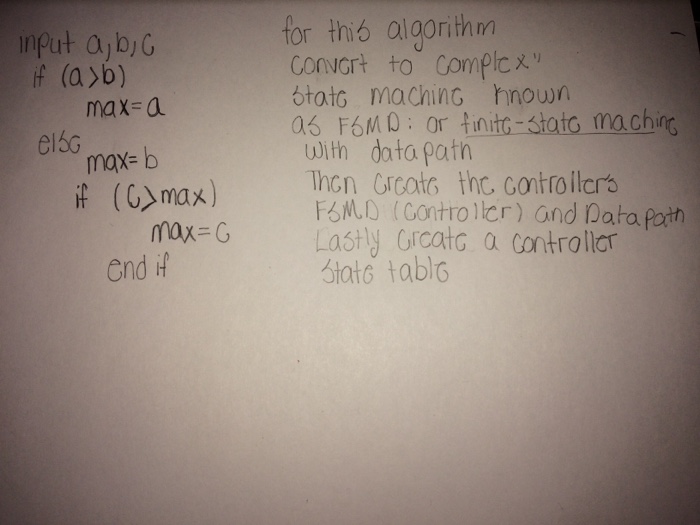 input a,b,c
if (a>b)
max=a
else
max=b
if (c>max)
max=c
end if
for this algorithm
convert to complex"
state machine known
as FSMD: or finite-state machine
with datapath
Then create the controller's
FSMD (controller) and Datapath
Lastly create a controller
state table